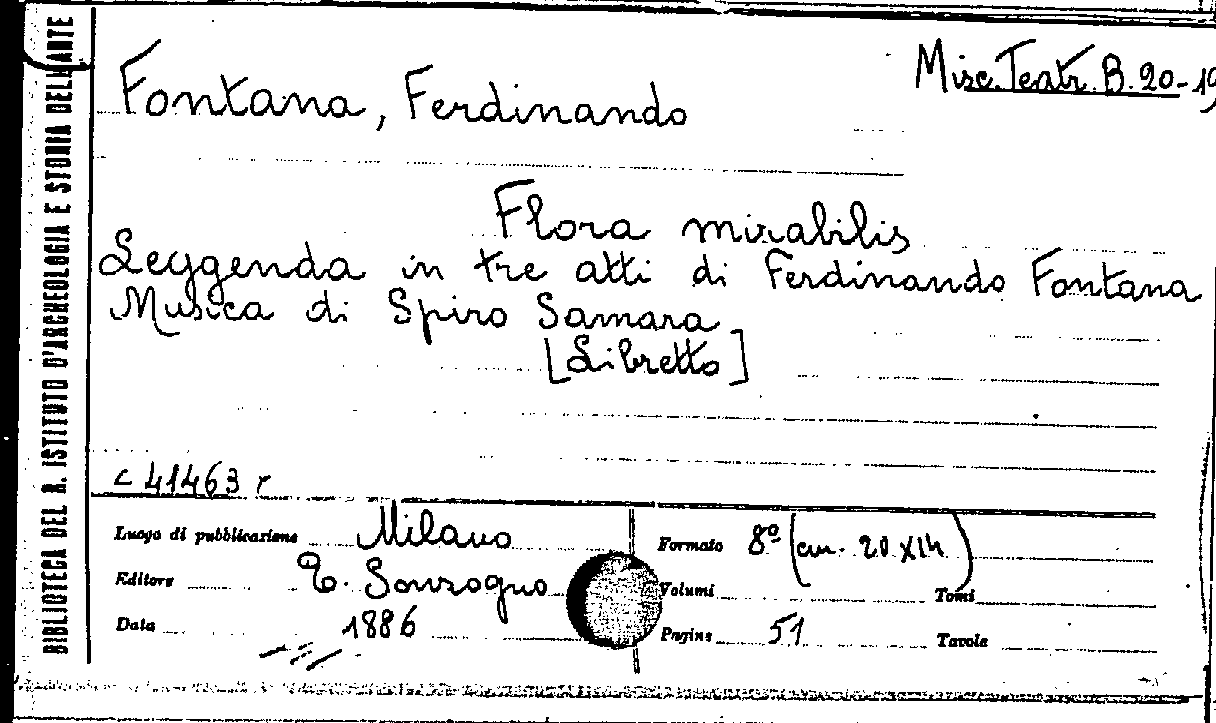 BIBLIOTECA DEL R. ISTITUTO D'ARCHEOLOGIA E STORIA DELL'ARTE
Misc. Teatr. B. 20-19
Fontana, Ferdinando
Flora mirabilis
Leggenda in tre atti di Ferdinando Fontana
Musica di Spiro Samara
[Libretto]
c 41463 r
Luogo di pubblicazione Milano
Editore E. Sonzogno
Data 1886
Formato 8º (cm. 20 x 14)
Volumi Tomi
Pagine 51 Tavole